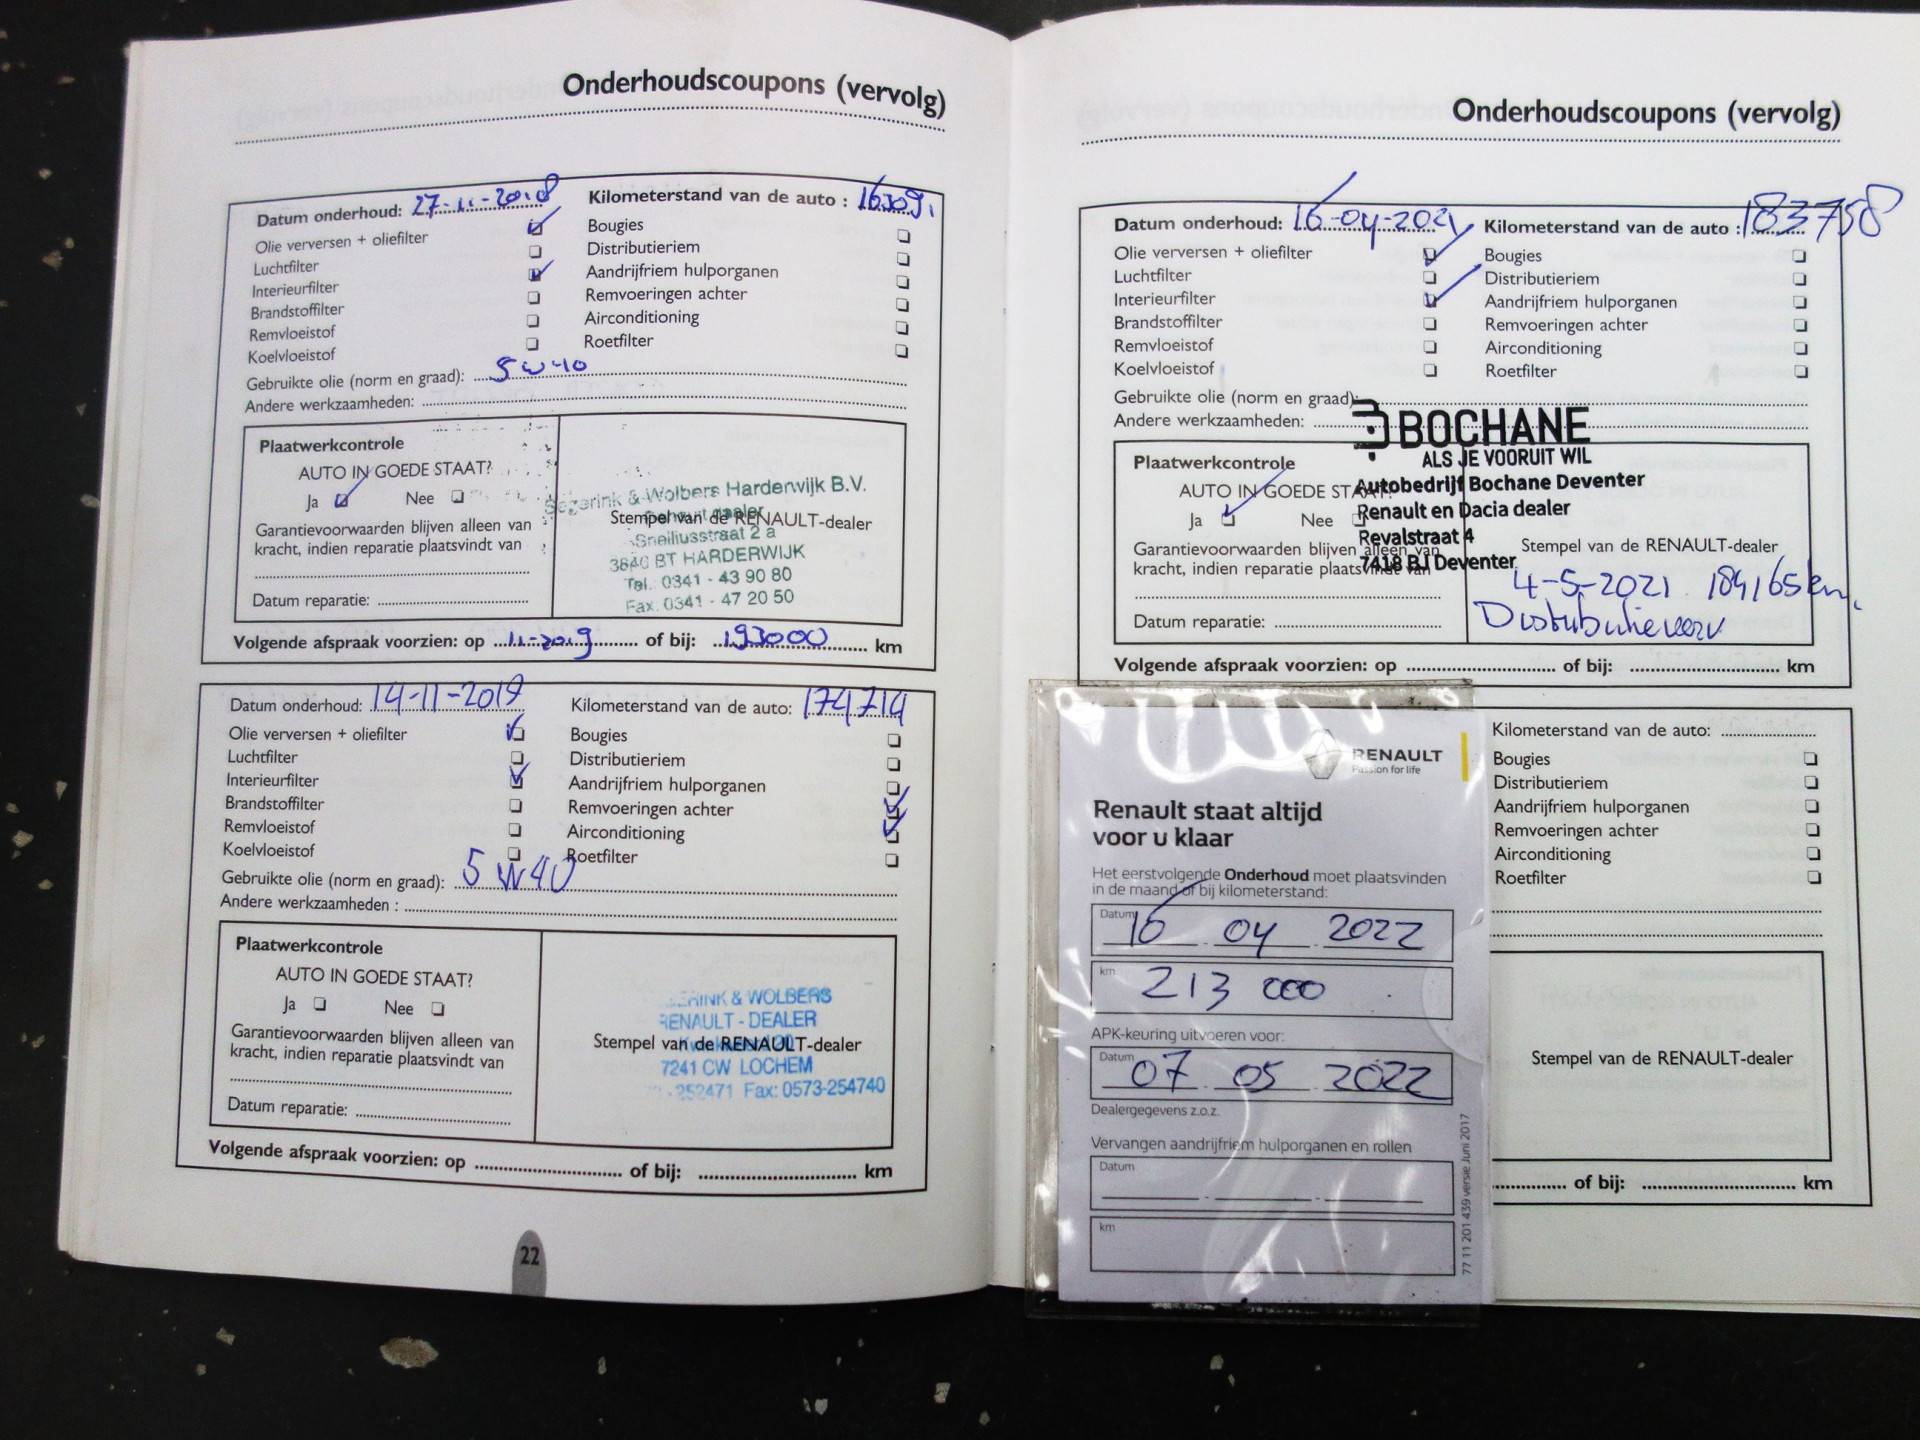 Onderhoudscoupons (vervolg)
Datum onderhoud: 27-11-2018 Kilometerstand van de auto : 163091
Olie verversen + oliefilter Bougies
Luchtfilter Distributieriem
Interieurfilter Aandrijfriem hulporganen
Brandstoffilter Remvoeringen achter
Remvloeistof Airconditioning
Koelvloeistof Roetfilter
Gebruikte olie (norm en graad): 5w40
Andere werkzaamheden:
Plaatwerkcontrole
AUTO IN GOEDE STAAT?
Ja Nee
Garantievoorwaarden blijven alleen van
kracht, indien reparatie plaatsvindt van
Datum reparatie:
& Wolbers Harderwijk B.V.
Renault dealer
Stempel van de RENAULT-dealer
Snelliusstraat 2 a
3840 BT HARDERWIJK
Tel. 0341 - 43 90 80
Fax. 0341 - 47 20 50
Volgende afspraak voorzien: op 11-2019 of bij: 193000 km
Datum onderhoud: 14-11-2019 Kilometerstand van de auto: 174714
Olie verversen + oliefilter Bougies
Luchtfilter Distributieriem
Interieurfilter Aandrijfriem hulporganen
Brandstoffilter Remvoeringen achter
Remvloeistof Airconditioning
Koelvloeistof Roetfilter
Gebruikte olie (norm en graad): 5W40
Andere werkzaamheden :
Plaatwerkcontrole
AUTO IN GOEDE STAAT?
Ja Nee
Garantievoorwaarden blijven alleen van
kracht, indien reparatie plaatsvindt van
Datum reparatie:
& WOLBERS
RENAULT - DEALER
Stempel van de RENAULT-dealer
7241 CW LOCHEM
252471 Fax: 0573-254740
Volgende afspraak voorzien: op of bij: km
22
Onderhoudscoupons (vervolg)
Datum onderhoud: 16-04-2021 Kilometerstand van de auto : 183758
Olie verversen + oliefilter Bougies
Luchtfilter Distributieriem
Interieurfilter Aandrijfriem hulporganen
Brandstoffilter Remvoeringen achter
Remvloeistof Airconditioning
Koelvloeistof Roetfilter
Gebruikte olie (norm en graad):
Andere werkzaamheden:
BOCHANE
ALS JE VOORUIT WIL
Autobedrijf Bochane Deventer
Renault en Dacia dealer
Revalstraat 4
7418 BJ Deventer
Plaatwerkcontrole
AUTO IN GOEDE STAAT?
Ja Nee
Garantievoorwaarden blijven alleen van
kracht, indien reparatie plaatsvindt van
Datum reparatie:
Stempel van de RENAULT-dealer
4-5-2021 184165 km.
Volgende afspraak voorzien: op of bij: km
RENAULT
Passion for life
Renault staat altijd
voor u klaar
Het eerstvolgende Onderhoud moet plaatsvinden
in de maand of bij kilometerstand:
Datum 16 04 2022
km 213 000
APK-keuring uitvoeren voor:
Datum 07 05 2022
Dealergegevens z.o.z.
Vervangen aandrijfriem hulporganen en rollen
Datum
km
77 11 201 439 versie Juni 2017
Kilometerstand van de auto:
Bougies
Distributieriem
Aandrijfriem hulporganen
Remvoeringen achter
Airconditioning
Roetfilter
Stempel van de RENAULT-dealer
of bij: km